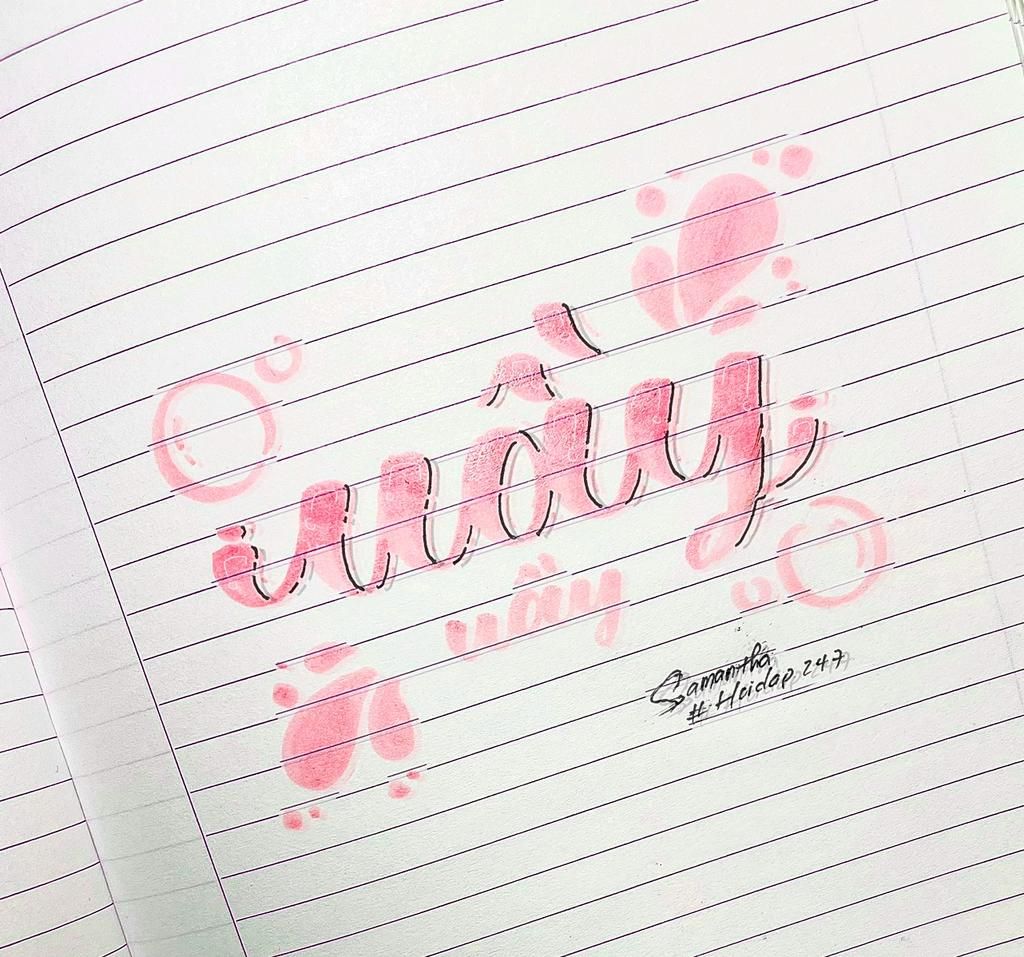 uầy
uầy
Samantha
# Hoidap 247